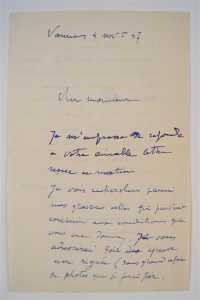 4 nov
Cher monsieur
Je m'empresse de répondre
à votre aimable lettre
reçue ce matin
Je vais rechercher parmi
mes gravures celles qui peuvent
convenir aux conditions que
vous me donnez, Je vous
adresserai soit une épreuve
non signée (sans grand
ou photo que je